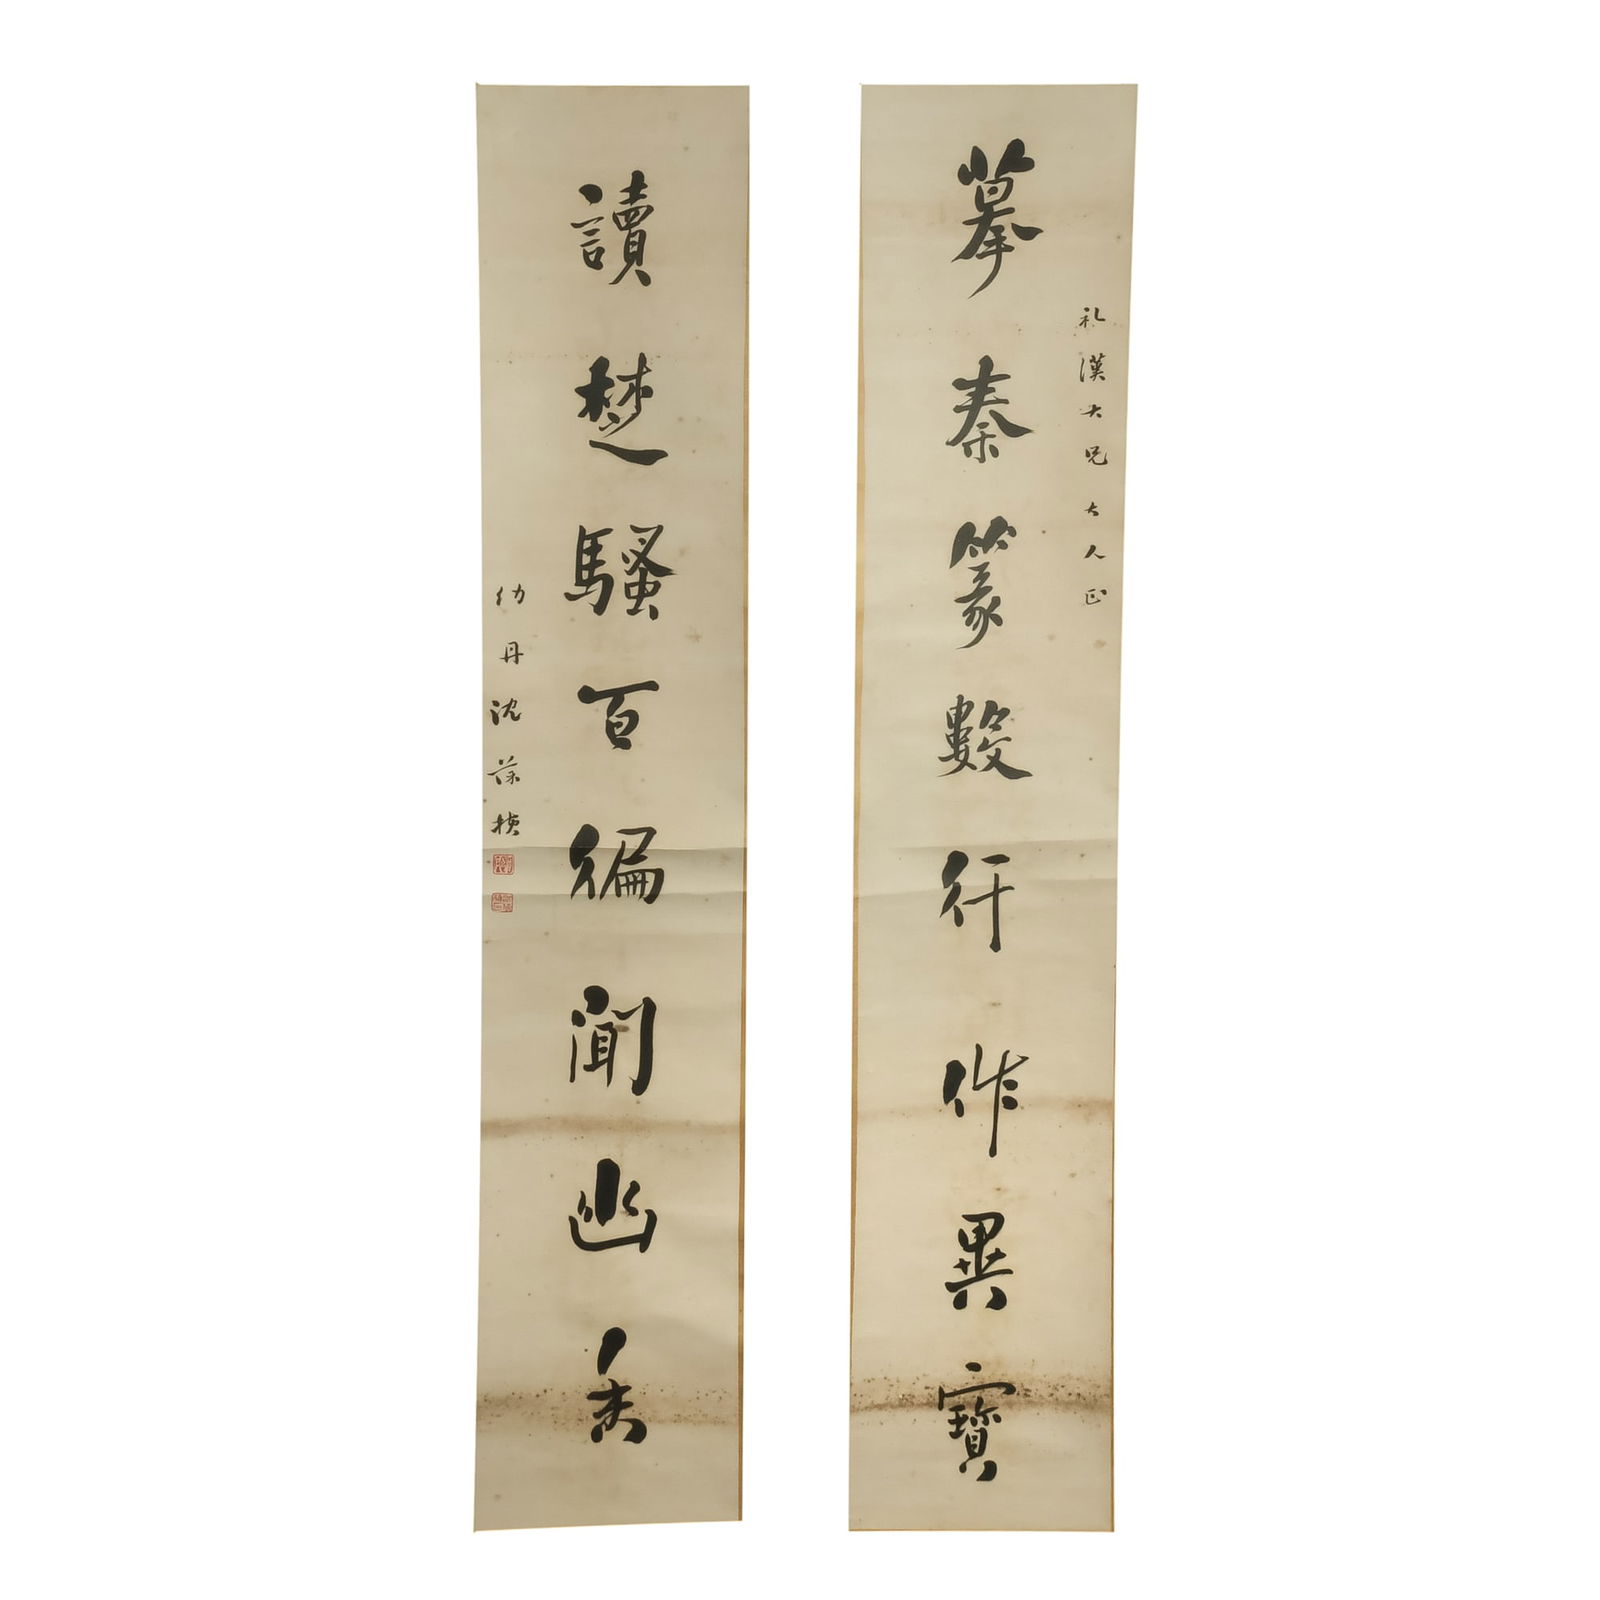 摹秦篆數行作異寶
礼漢大兄大人正
讀楚騷百徧聞幽香
幼丹沈葆楨